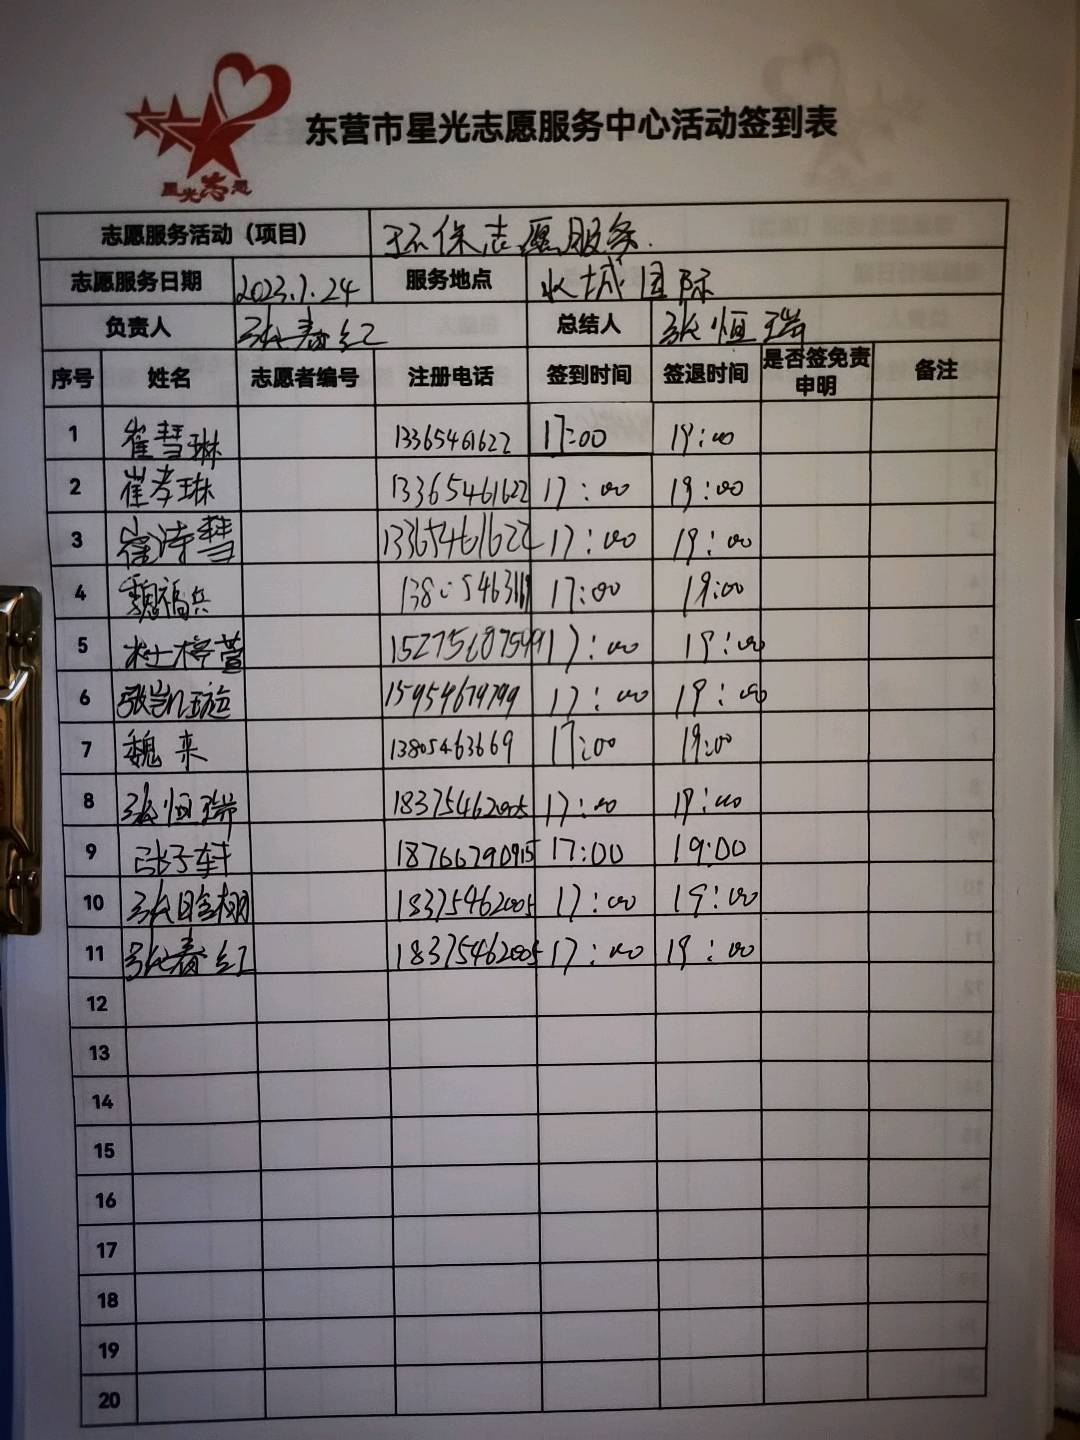 星光志愿
东营市星光志愿服务中心活动签到表
志愿服务活动（项目） 环保志愿服务.
志愿服务日期 2023.1.24 服务地点 水城国际
负责人 张春红 总结人 张恒瑞
序号 姓名 志愿者编号 注册电话 签到时间 签退时间 是否签免责申明 备注
1 崔彗琳 13365461622 17:00 19:00
2 崔孝琳 13365461622 17:00 19:00
3 崔诗彗 13365461622 17:00 19:00
4 魏福兵 17:00 19:00
5 杜婷萱 17:00 19:00
6 张凯璇 15954679799 17:00 19:00
7 魏来 13805463669 17:00 19:00
8 张恒瑞 18375462005 17:00 19:00
9 张子轩 18766790915 17:00 19:00
10 18375462005 17:00 19:00
11 张春红 18375462005 17:00 19:00
12
13
14
15
16
17
18
19
20